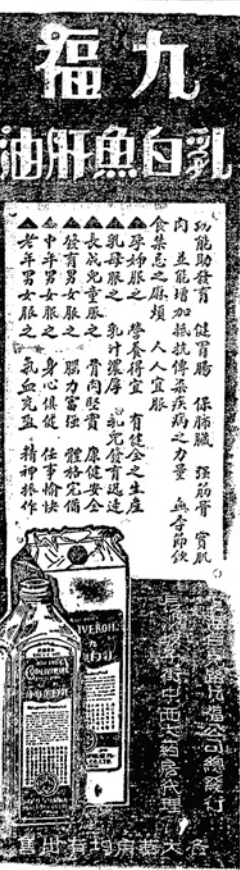 九福
乳白魚肝油
功能助發育 健胃腸 保肺臟 强筋骨 實肌
肉 並能增加抵抗傳染疾病之力量 無季節飲
食禁忌之麻煩 人人宜服
孕婦服之 營養得宜 有健全之生產
乳母服之 乳汁濃厚 乳兒發育迅速
長成兒童服之 骨肉堅實 康健安全
發育男女服之 腦力富强 體格完備
中年男女服之 身心俱健 任事愉快
老年男女服之 氣血充盈 精神振作
九福公司總發行
中西大藥房代理
各大藥房均有出售